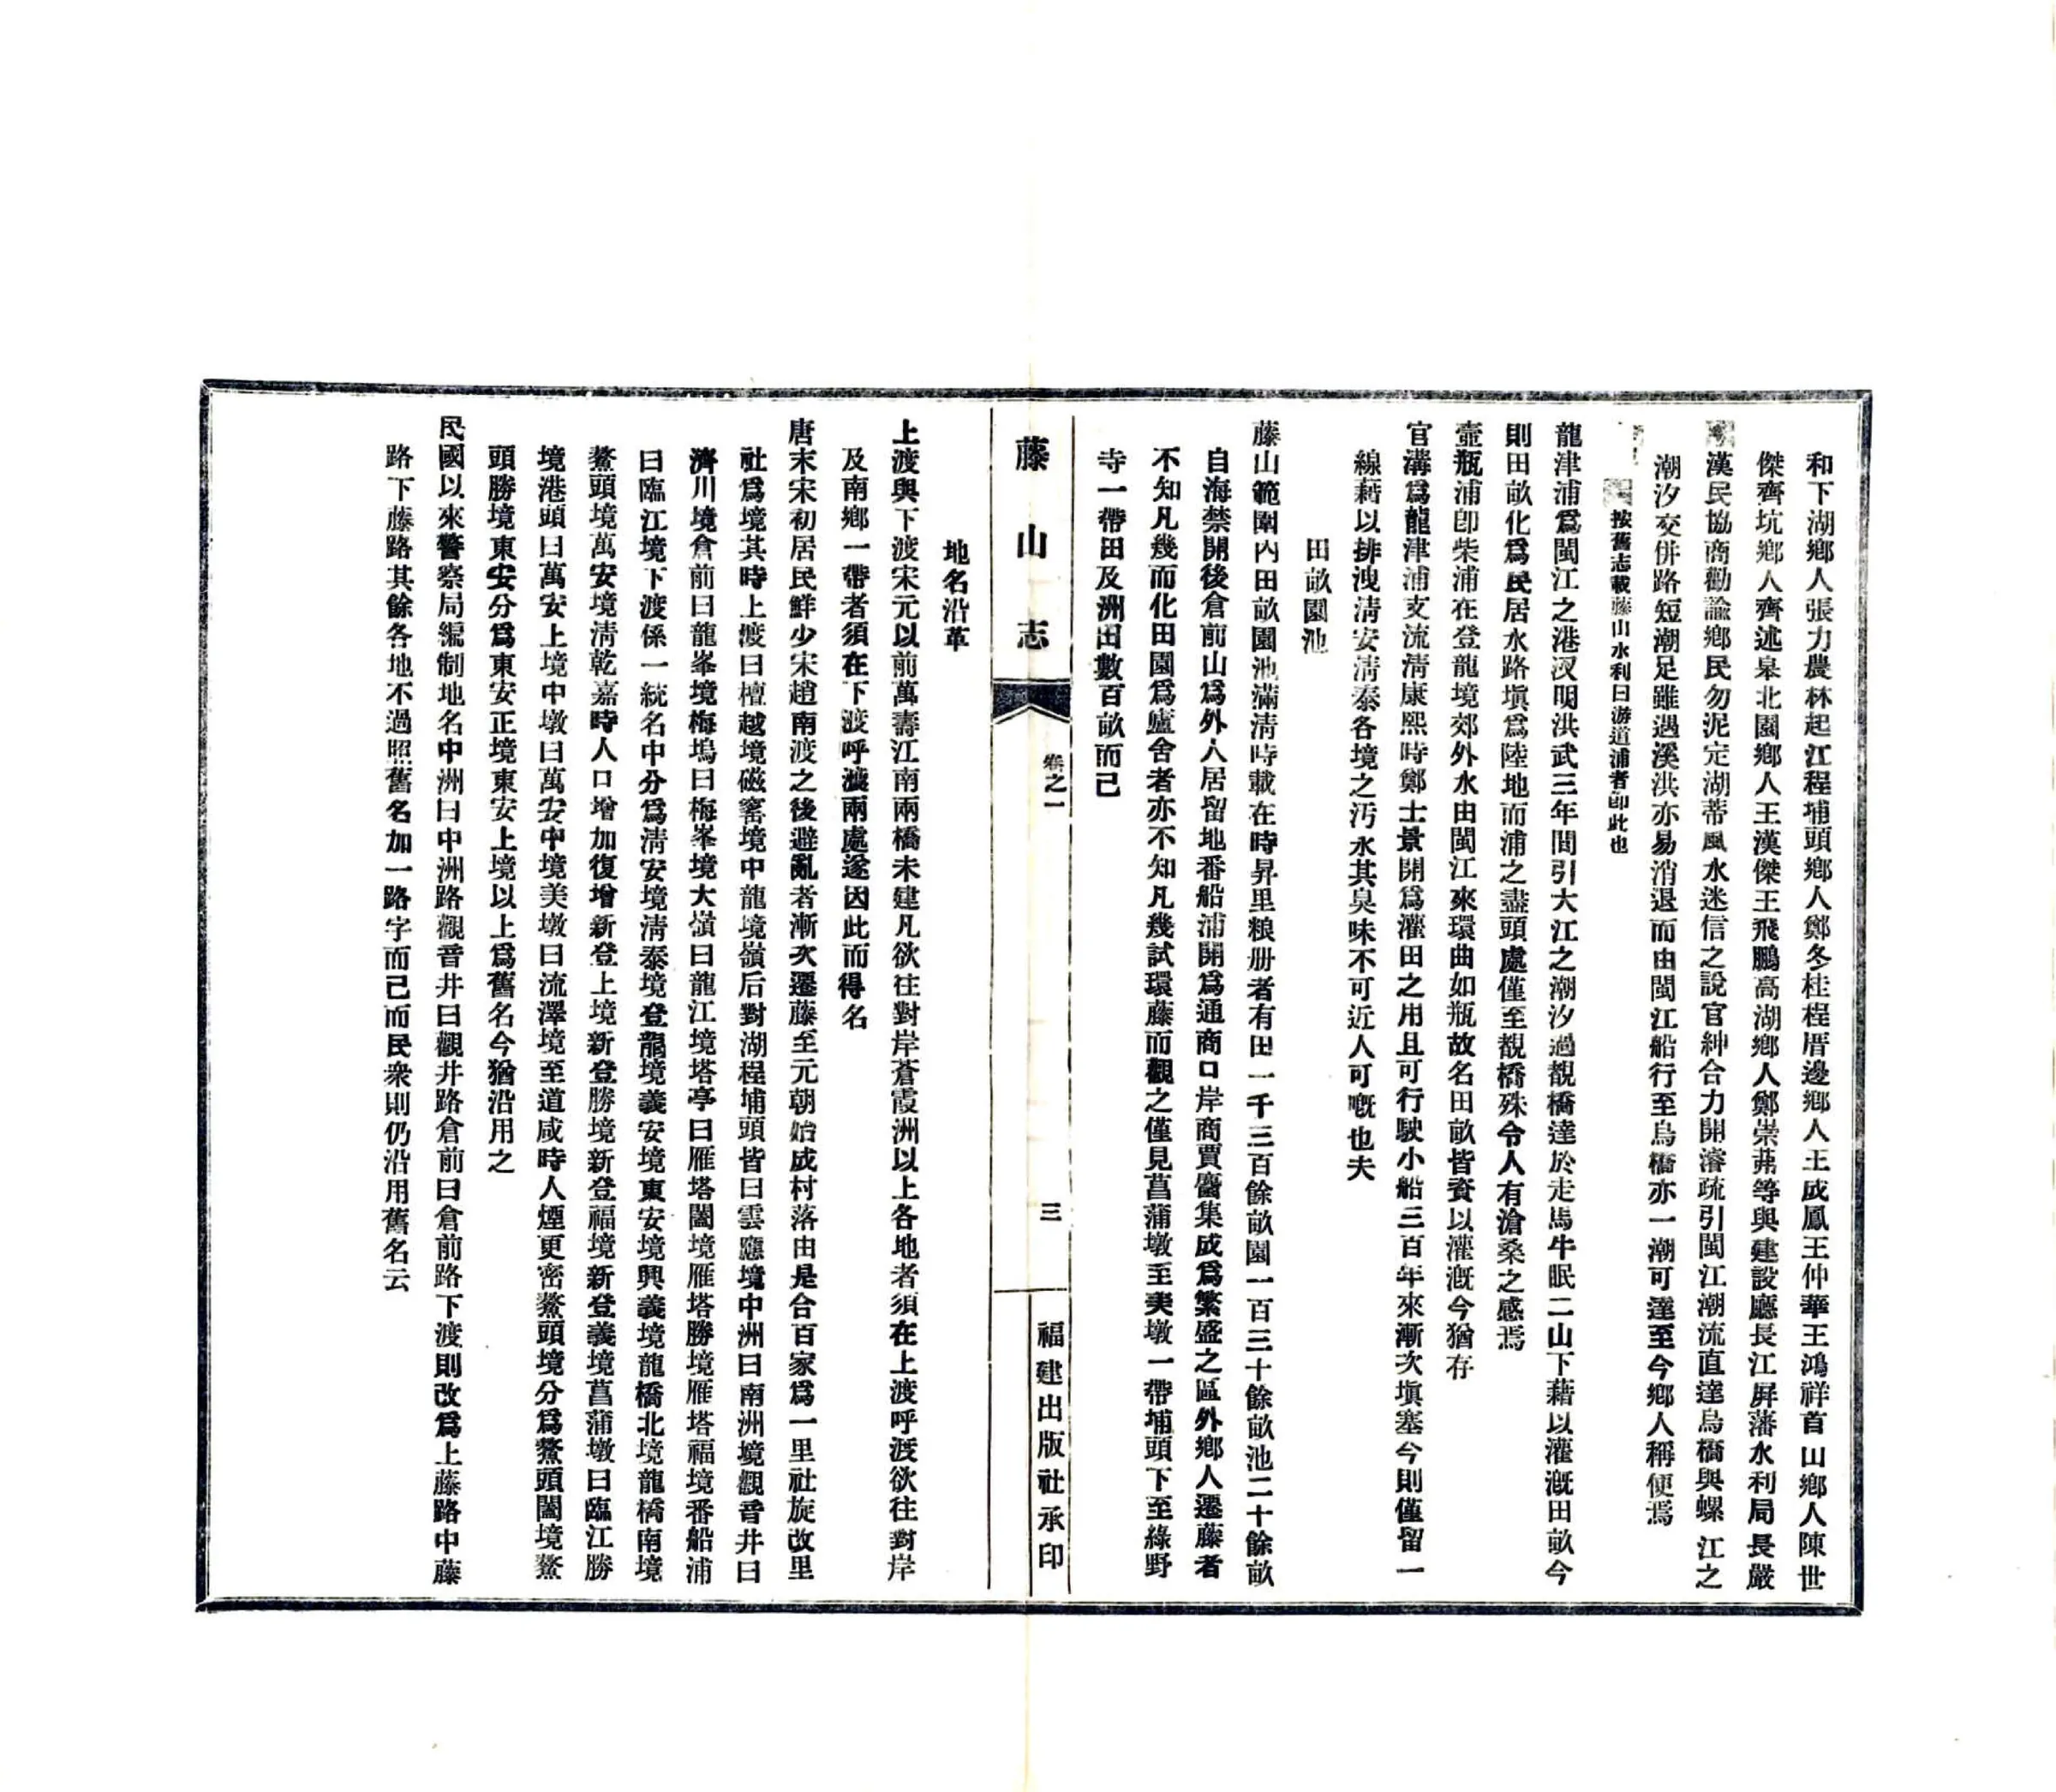 和下湖鄉人張力農林起江程埔頭鄉人鄭冬桂程厝邊鄉人王成鳳王仲華王鴻祥首山鄉人陳世
傑齊坑鄉人齊述皋北園鄉人王漢傑王飛鵬高湖鄉人鄭崇蕘等與建設廳長江屏藩水利局長嚴
漢民協商勸諭鄉民勿泥定湖蒂風水迷信之說官紳合力開濬疏引閩江潮流直達烏橋與螺江之
潮汐交併路短潮足雖遇溪洪亦易消退而由閩江船行至烏橋亦一潮可達至今鄉人稱便焉
按舊志載藤山水利曰游道浦者卽此也
龍津浦爲閩江之港汊明洪武三年間引大江之潮汐過觀橋達於走馬牛眠二山下藉以灌漑田畝今
則田畝化爲民居水路塡爲陸地而浦之盡頭處僅至觀橋殊令人有滄桑之感焉
壺瓶浦卽柴浦在登龍境郊外水由閩江來環曲如瓶故名田畝皆資以灌漑今猶存
官溝爲龍津浦支流淸康熙時鄭士景開爲灌田之用且可行駛小船三百年來漸次塡塞今則僅留一
線藉以排洩淸安淸泰各境之汚水其臭味不可近人可嘅也夫
田畝園池
藤山範圍內田畝園池滿淸時載在時昇里粮册者有田一千三百餘畝園一百三十餘畝池二十餘畝
自海禁開後倉前山爲外人居留地番船浦開爲通商口岸商賈麕集成爲繁盛之區外鄉人遷藤者
不知凡幾而化田園爲廬舍者亦不知凡幾試環藤而觀之僅見菖蒲墩至美墩一帶埔頭下至綠野
寺一帶田及洲田數百畝而已
藤山志
卷之一
三
福建出版社承印
地名沿革
上渡與下渡宋元以前萬壽江南兩橋未建凡欲往對岸蒼霞洲以上各地者須在上渡呼渡欲往對岸
及南鄉一帶者須在下渡呼渡兩處遂因此而得名
唐末宋初居民鮮少宋趙南渡之後避亂者漸次遷藤至元朝始成村落由是合百家爲一里社旋改里
社爲境其時上渡曰檀越境磁窰境中龍境嶺后對湖程埔頭皆曰雲應境中洲曰南洲境觀音井曰
濟川境倉前曰龍峯境梅塢曰梅峯境大嶺曰龍江境塔亭曰雁塔闔境雁塔勝境雁塔福境番船浦
曰臨江境下渡係一統名中分爲淸安境淸泰境登龍境義安境東安境興義境龍橋北境龍橋南境
鰲頭境萬安境淸乾嘉時人口增加復增新登上境新登勝境新登福境新登義境菖蒲墩曰臨江勝
境港頭曰萬安上境中墩曰萬安中境美墩曰流澤境至道咸時人煙更密鰲頭境分爲鰲頭闔境鰲
頭勝境東安分爲東安正境東安上境以上爲舊名今猶沿用之
民國以來警察局編制地名中洲曰中洲路觀音井曰觀井路倉前曰倉前路下渡則改爲上藤路中藤
路下藤路其餘各地不過照舊名加一路字而已而民衆則仍沿用舊名云